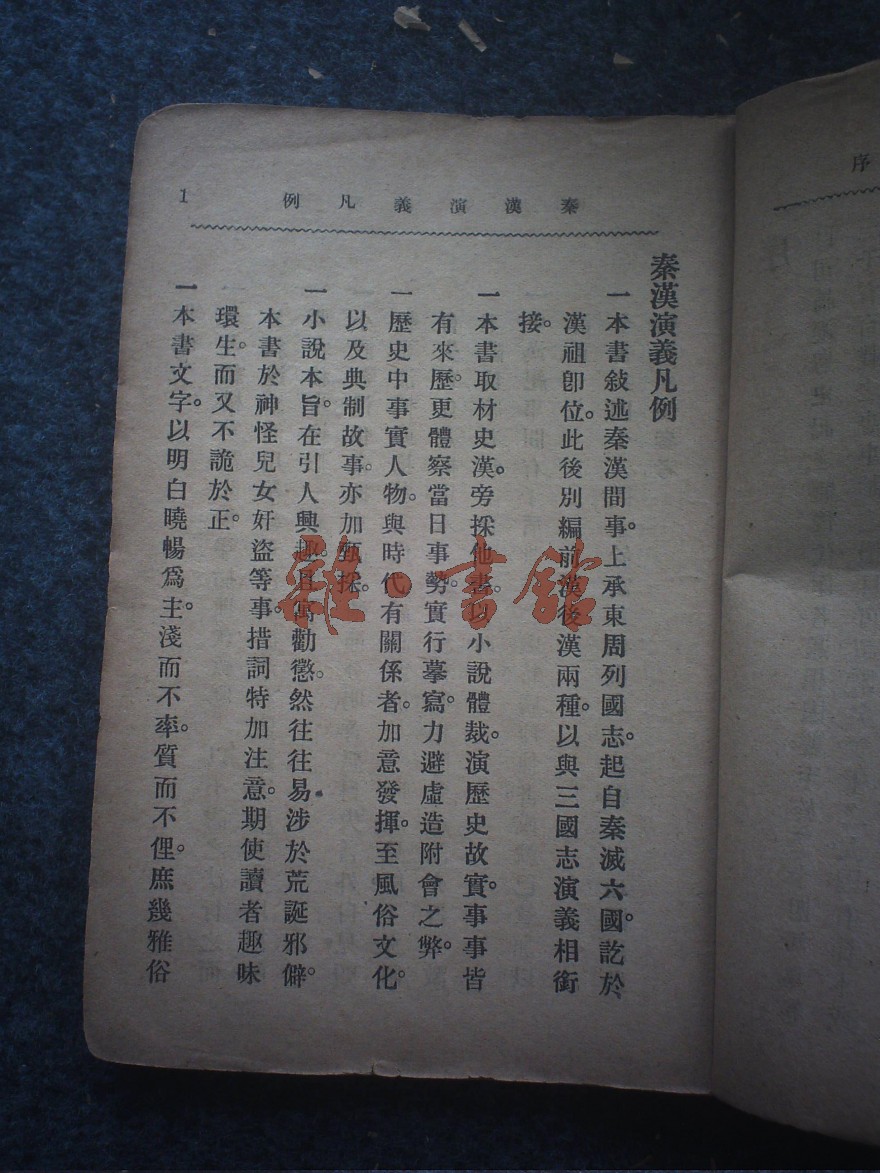 秦漢演義凡例
1
秦漢演義凡例
一本書敍述秦漢間事。上承東周列國志。起自秦滅六國。訖於
漢祖卽位。此後別編前漢後漢兩種。以與三國志演義相銜
接。
一本書取材史漢。旁採他書。以小說體裁。演歷史故實。事事皆
有來歷。更體察當日事勢。實行摹寫。力避虛造附會之弊。
一歷史中事實人物。與時代有關係者。加意發揮。至風俗文化。
以及典制故事。亦加甄採。
一小說本旨。在引人興趣。且寓勸懲。然往往易涉於荒誕邪僻。
本書於神怪兒女奸盜等事。措詞特加注意。期使讀者趣味
環生。而又不詭於正。
一本書文字。以明白曉暢爲主。淺而不率。質而不俚。庶幾雅俗
序
雜·書館